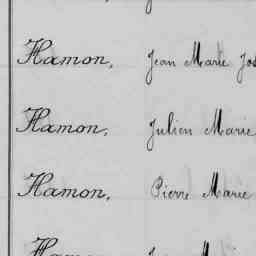 Hamon, Jean Marie Jos
Hamon, Julien Marie
Hamon, Pierre Marie